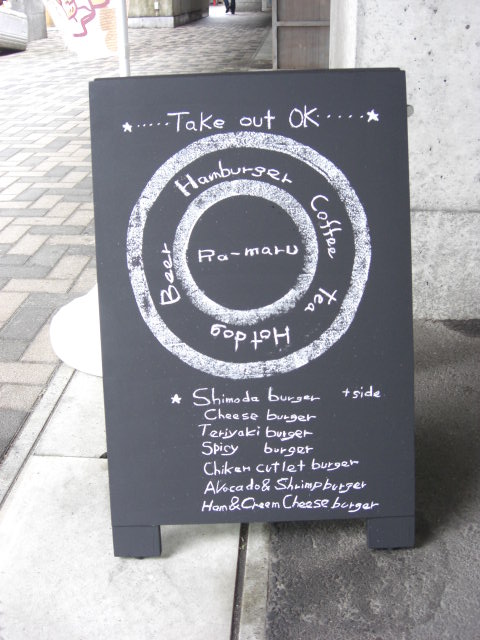 ★ ····· Take out OK ····· ★
Hamburger
Coffee
tea
Hotdog
Beer
Ra-maru
★ Shimoda burger +side
Cheese burger
Teriyaki burger
Spicy burger
Chiken cutlet burger
Avocado & Shrimp burger
Ham & Creem Cheese burger